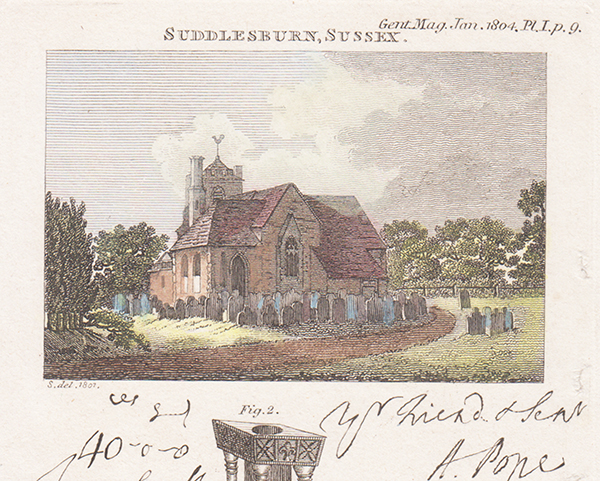 Gent. Mag. Jan. 1804. Pl. I. p. 9.
SUDDLESBURN, SUSSEX.
S. del. 1801.
Fig. 2.
Yr Friend & Servt
40-0-0
A. Pope